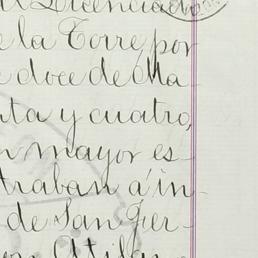 Licenciado
e la Torre, por
doce de Ma
ta y cuatro,
n mayor es-
traban á in-
de San Fer-
on Atilan